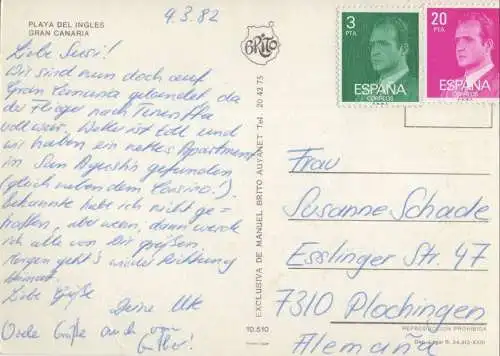 PLAYA DEL INGLES
GRAN CANARIA
9.3.82
Liebe Susi!
Wir sind nun doch auf
Gran Canaria gelandet, da
der Flieger nach Teneriffa
voll war. Wetter ist toll und
wir haben ein nettes Apartment
in San Agustin gefunden
(gleich neben dem Casino!).
Bekannte habe ich nicht ge-
troffen, aber wenn, dann werde
ich alle von Dir grüßen.
Morgen geht's wieder Richtung
Heimat.
Liebe Grüße
Deine
Viele Grüße auch von
BRITO
EXCLUSIVA DE MANUEL BRITO AUYANET Tel. 20 42 75
10.510
3
PTA
ESPAÑA
CORREOS
20
PTA
ESPAÑA
CORREOS
Frau
Susanne Schade
Esslinger Str. 47
7310 Plochingen
REPRODUCCION PROHIBIDA
Alemaña